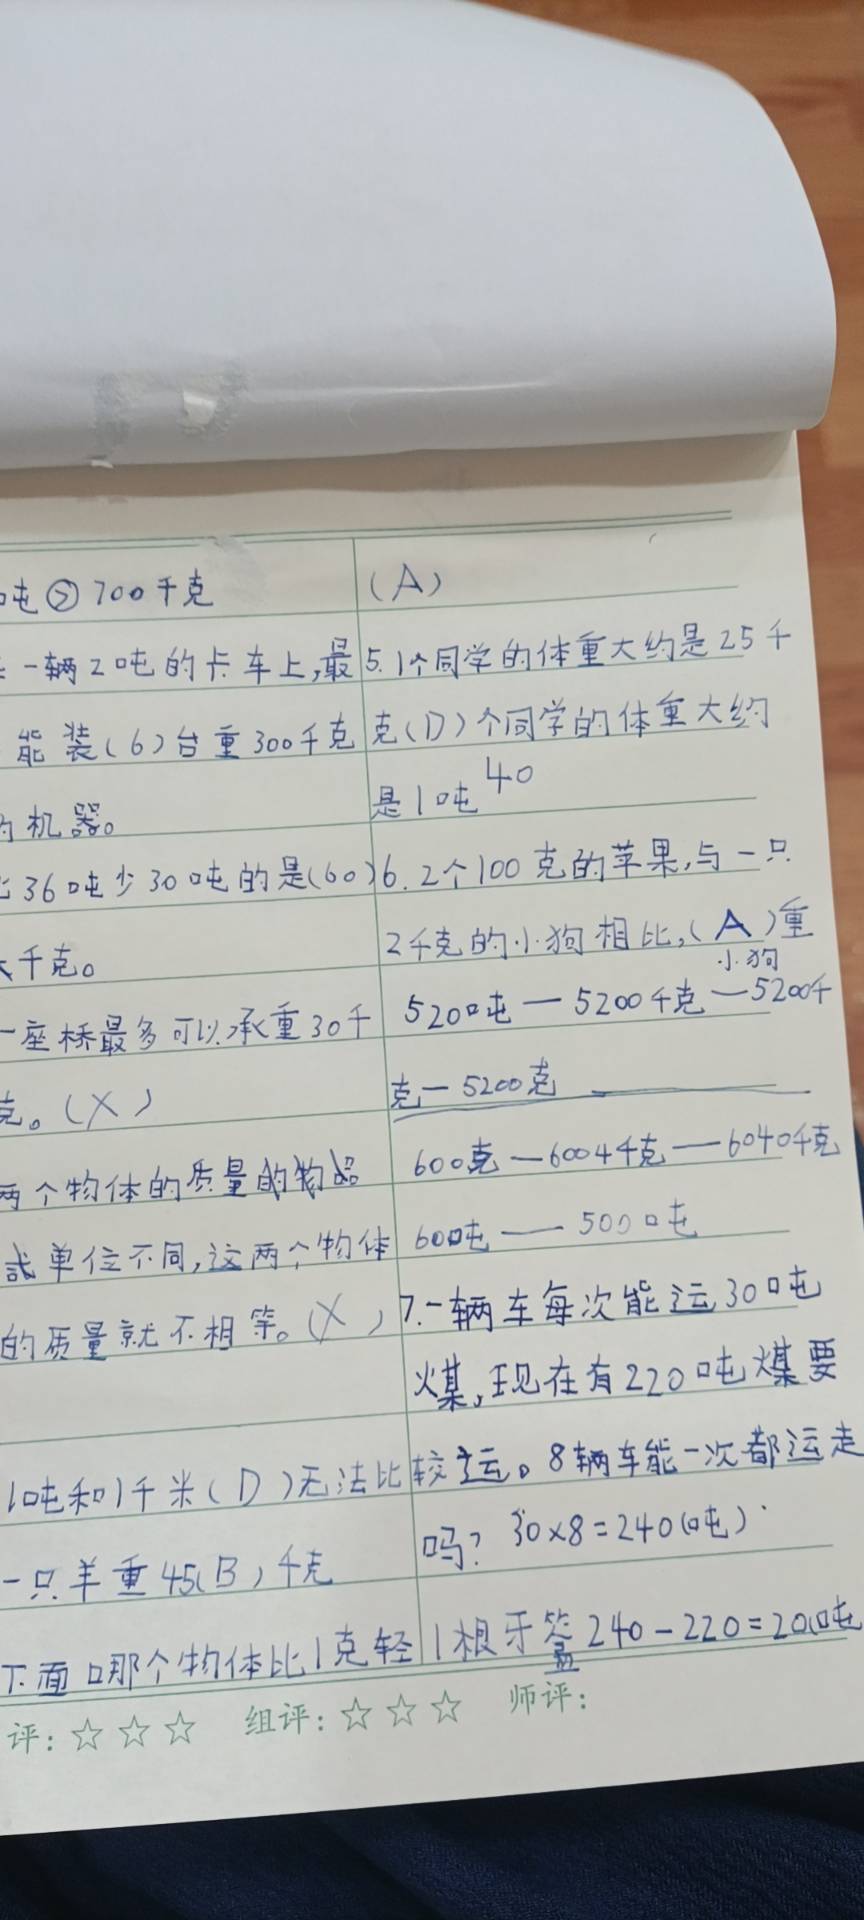 吨>700千克
一辆2吨的卡车上,最
能装(6)台重300千克
的机器。
比36吨少30吨的是(60)
千克。
一座桥最多可以承重30千
克。(X)
两个物体的质量的物品
或单位不同,这两个物体
的质量就不相等。(X)
1吨和1千米(D)无法比较
一只羊重45(B)千克
下面哪个物体比1克轻 1根牙签
(A)
5.1个同学的体重大约是25千
克(D)个同学的体重大约
是1吨 40
6.2个100克的苹果,与一只
2千克的小狗相比,(A)重
小狗
5200吨—5200千克—5200千
克—5200克
600克—6004千克—6040千克
600吨—500吨
7.一辆车每次能运30吨
煤,现在有220吨煤要
运。8辆车能一次都运走
吗? 30×8=240(吨)
240-220=20(吨
评:☆☆☆ 组评:☆☆☆ 师评: